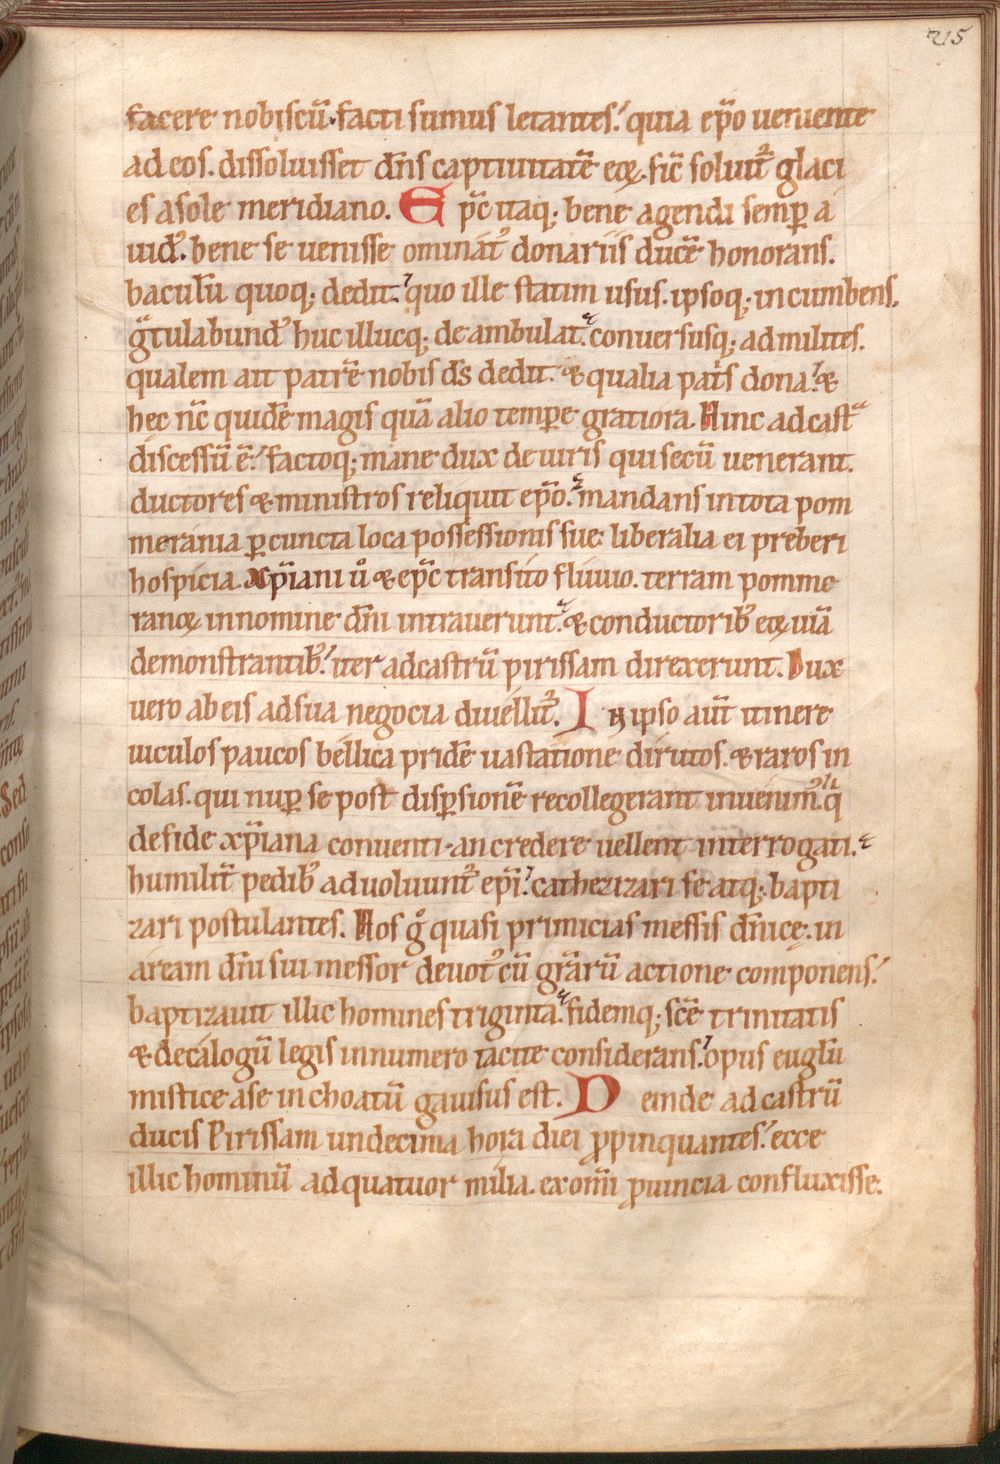 215
facere nobiscū. facti sumus letantes. quia ep̄o ueniente
ad eos. dissoluisset dn̄s captiuitatē eoꝝ. sic̄ soluit᷑ glaci
es a sole meridiano. Ep̄c itaq; bene agendi semꝑ a
uidꝰ. bene se uenisse ominatꝰ donariis ducē honorans.
baculū quoq; dedit. quo ille statim usus. ipsoq; incumbens.
gͣtulabundꝰ huc illucq; deambulat. conuersusq; ad milites.
qualem ait patrē nobis ds̄ dedit. & qualia patīs dona. &
hec nc̄ quidē magis quā alio tempore gratiora. Hinc ad castͣ
discessū ē. factoq; mane dux de uiris qui secū uenerant.
ductores & ministros reliquit ep̄o. mandans in tota pom
merania ꝑ cuncta loca possessionis sue liberalia ei preberi
hospicia. Xp̄iani u̇ & ep̄c transito fluuio. terram pomme
ranoꝝ in nomine dn̄i intrauerunt. & conductoribꝰ eoꝝ uiā
demonstrantibꝰ. iter ad castrū pirissam direxerunt. Dux
uero ab eis ad sua negocia diuellit᷑. In ipso aut̄ itinere
uiculos paucos bellica pridē uastatione dirutos. & raros in
colas. qui nuꝑ se post disꝑsionē recollegerant inuenim᷑. qi
de fide xp̄iana conuenti. an credere uellent interrogati.
humilit̄ pedibꝰ aduoluunt᷑ ep̄i. cathezizari se atq; bapti
zari postulantes. Hos gͦ quasi primicias messis dn̄ice. in
aream dn̄i sui messor deuotꝰ cū gr̄arū actione componens.
baptizauit illic homines triginta. fidemq; sc̄e trinitatis
& decalogū legis in numero tacite considerans. opus eugl̄ii
mistice a se inchoatū gauisus est. Deinde ad castrū
ducis Pirissam undecima hora diei ꝓpinquantes. ecce
illic hominū ad quatuor milia. ex om̄i ꝓuincia confluxisse.